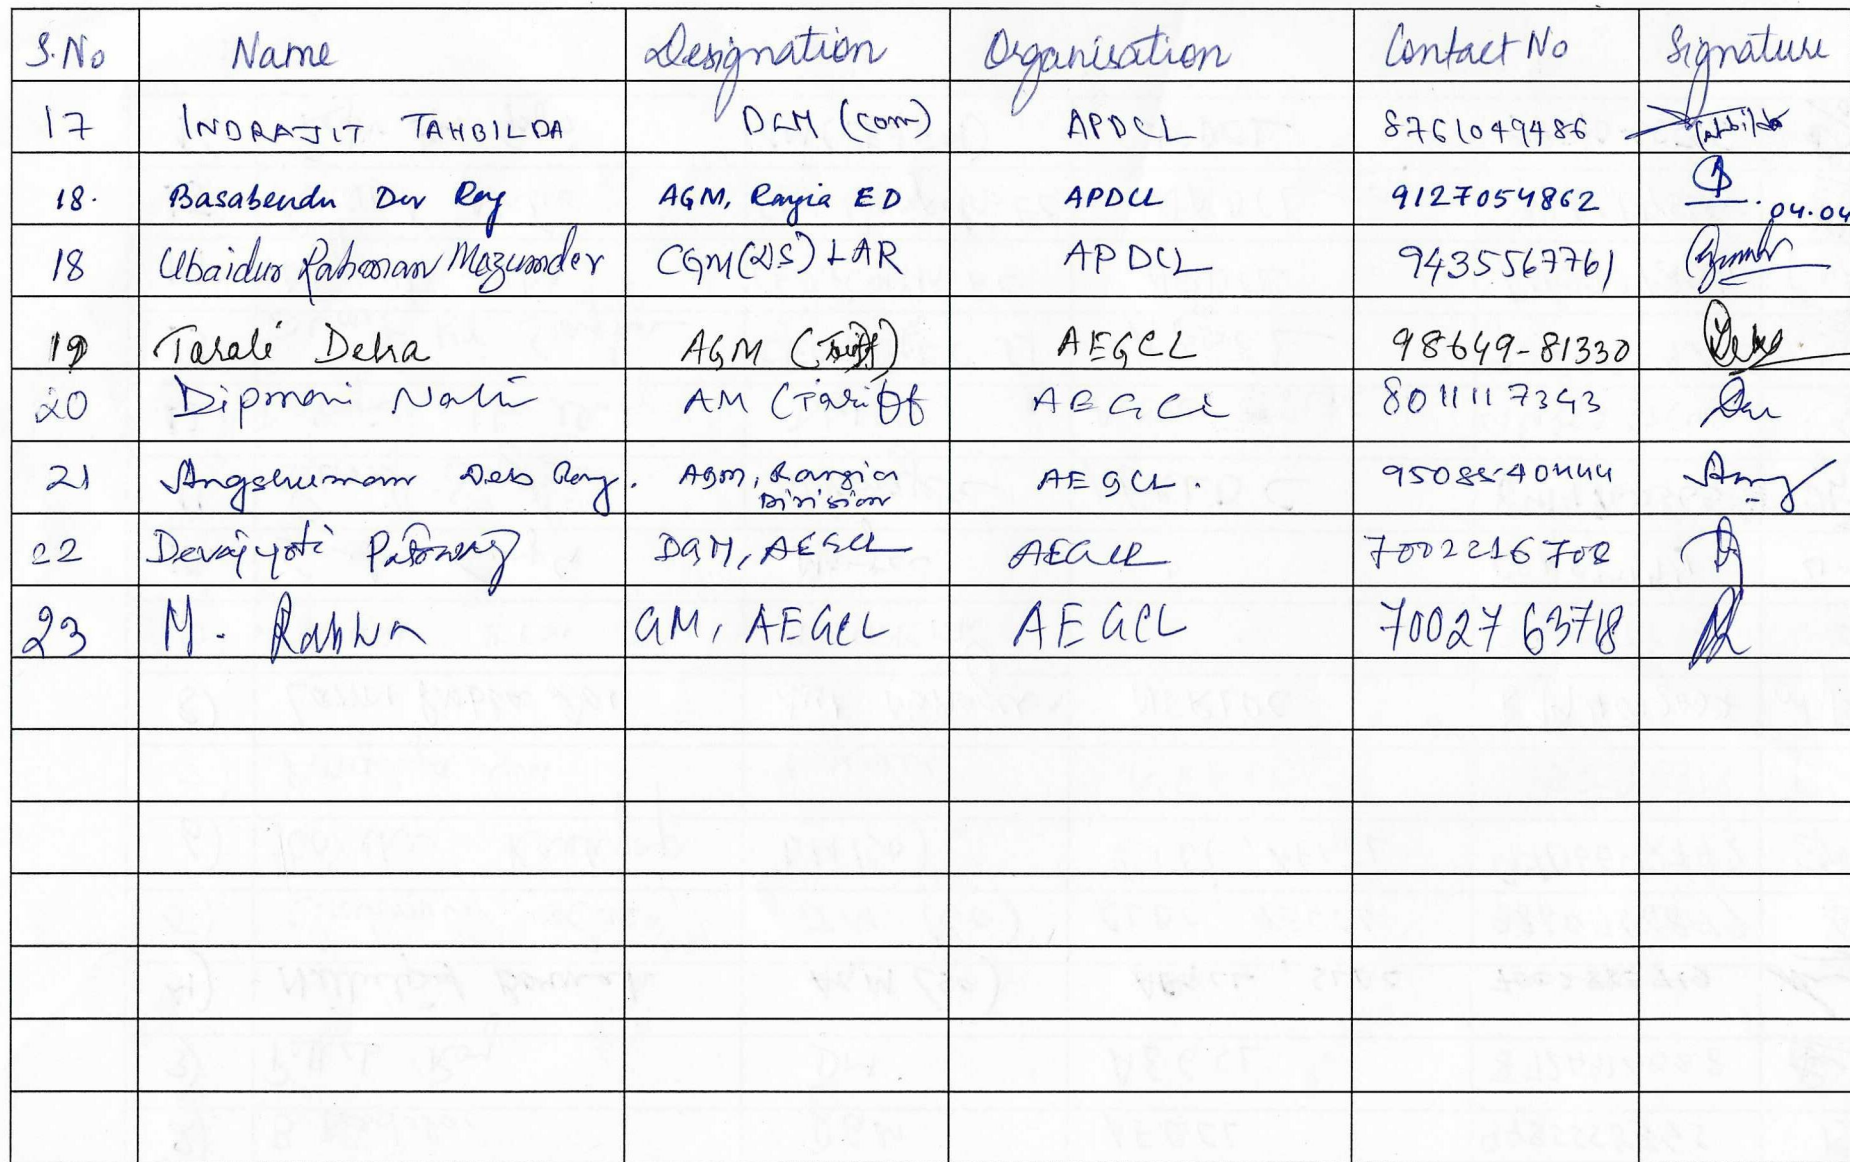 S.No Name Designation Organisation Contact No Signature
17 INDRAJIT TAHBILDA DGM (com) APDCL 8761049486
18. Basabendu Dev Roy AGM, Rangia ED APDCL 9127054862 04.04
18 Ubaidur Rahman Mazumder CGM(DS) LAR APDCL 9435567761
19 Tarali Deka AGM (Tariff) AEGCL 98649-81330
20 Dipmoni Nath AM (Tariff AEGCL 8011117343
21 Angshuman Deb Roy. AGM, Rangia AEGCL. 9508540444
Division
22 Devajyoti DGM, AEGCL AEGCL 7002216708
23 M. Rabha GM, AEGCL AEGCL 7002763718